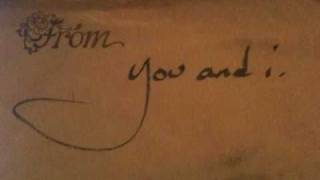 From
you and i.